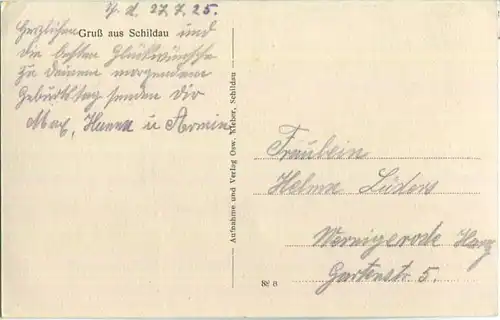 d. 27.7.25.
Herzlichen Gruß aus Schildau und
die besten Glückwünsche
zu deinem morgendem
Geburtstag senden Dir
Max, Hanna u Armin
Aufnahme und Verlag Osw. Kleber, Schildau
Fräulein
Helma Lüders
Wernigerode Harz
Gartenstr 5.
№ 8